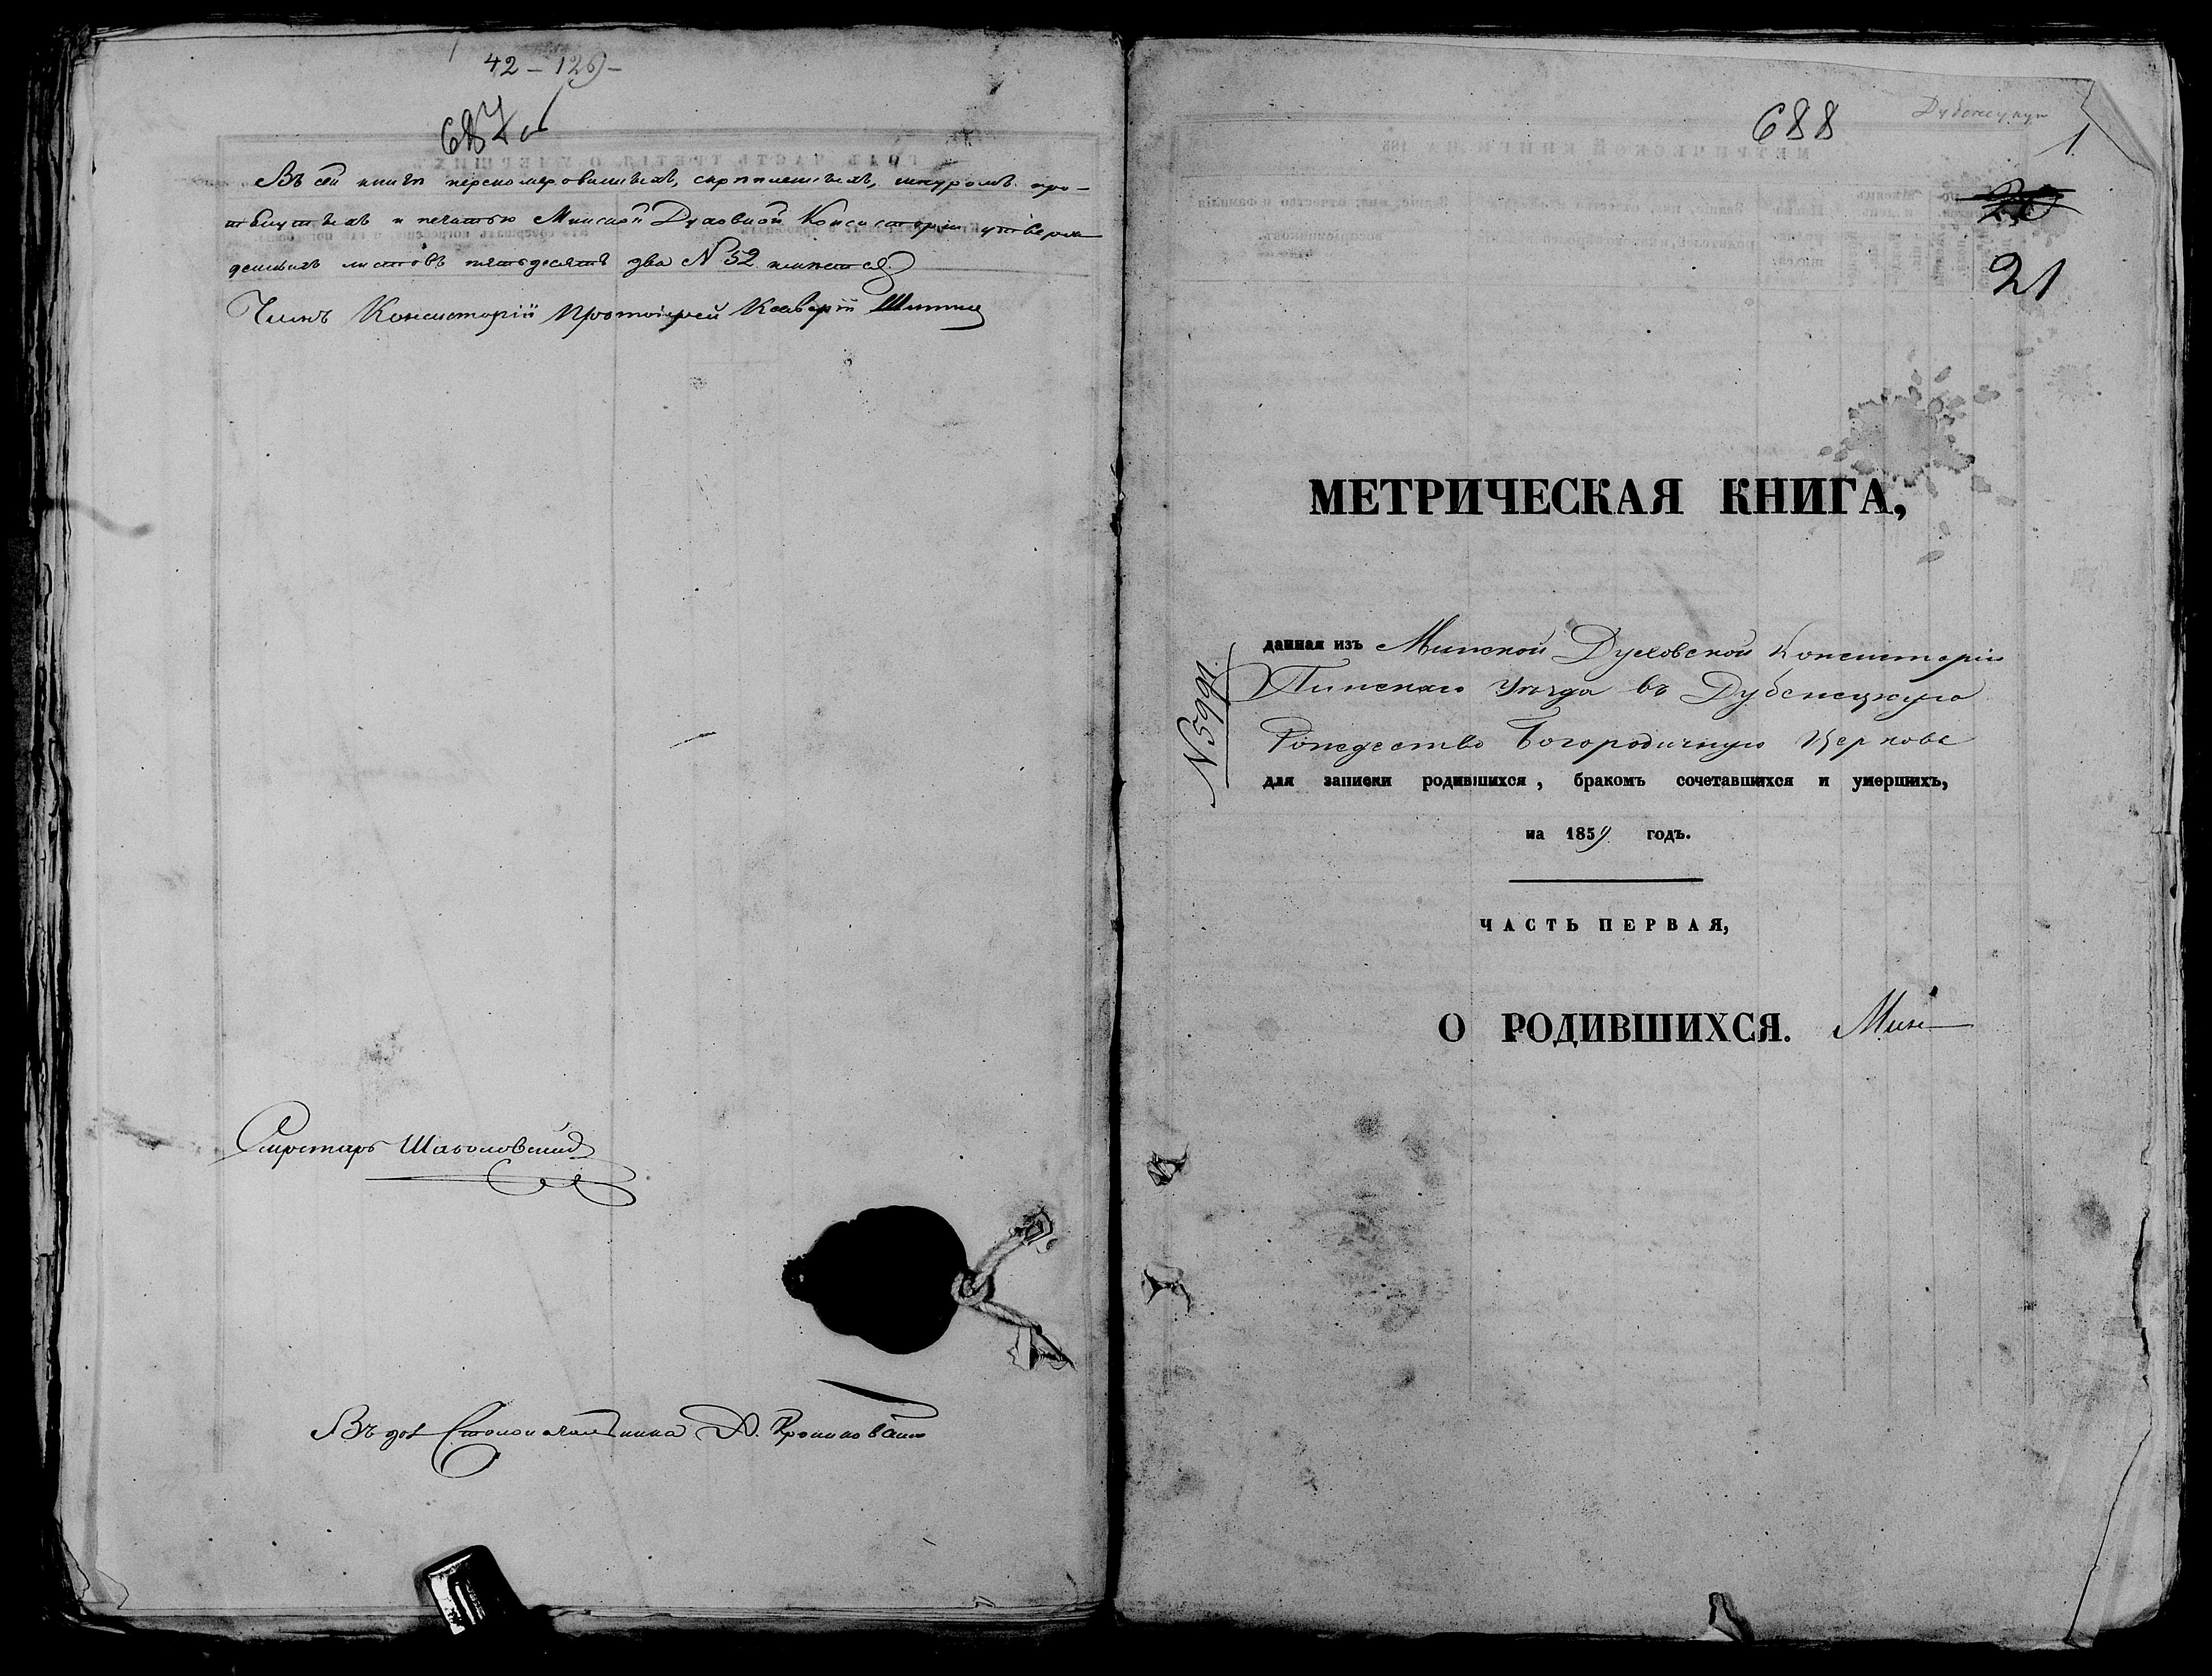 42 – 126 –
687 об
Въ сей книгѣ перенумерованныхъ, скрѣпленныхъ, шнуромъ про-
тянутыхъ и печатью Минской Духовной Консисторіи утверж-
денныхъ листовъ пятьдесятъ два № 52 имѣется
Членъ Консисторіи Протоіерей
Секретарь
Въ дол Столоначальника
688
1
21
МЕТРИЧЕСКАЯ КНИГА,
данная изъ Минской Духовской Консисторіи
Пинскаго Уѣзда въ Дубенецкую
Рождество Богородичную Церковь
для записки родившихся, бракомъ сочетавшихся и умершихъ,
на 1859 годъ.
№ 5991
ЧАСТЬ ПЕРВАЯ,
О РОДИВШИХСЯ. Мин